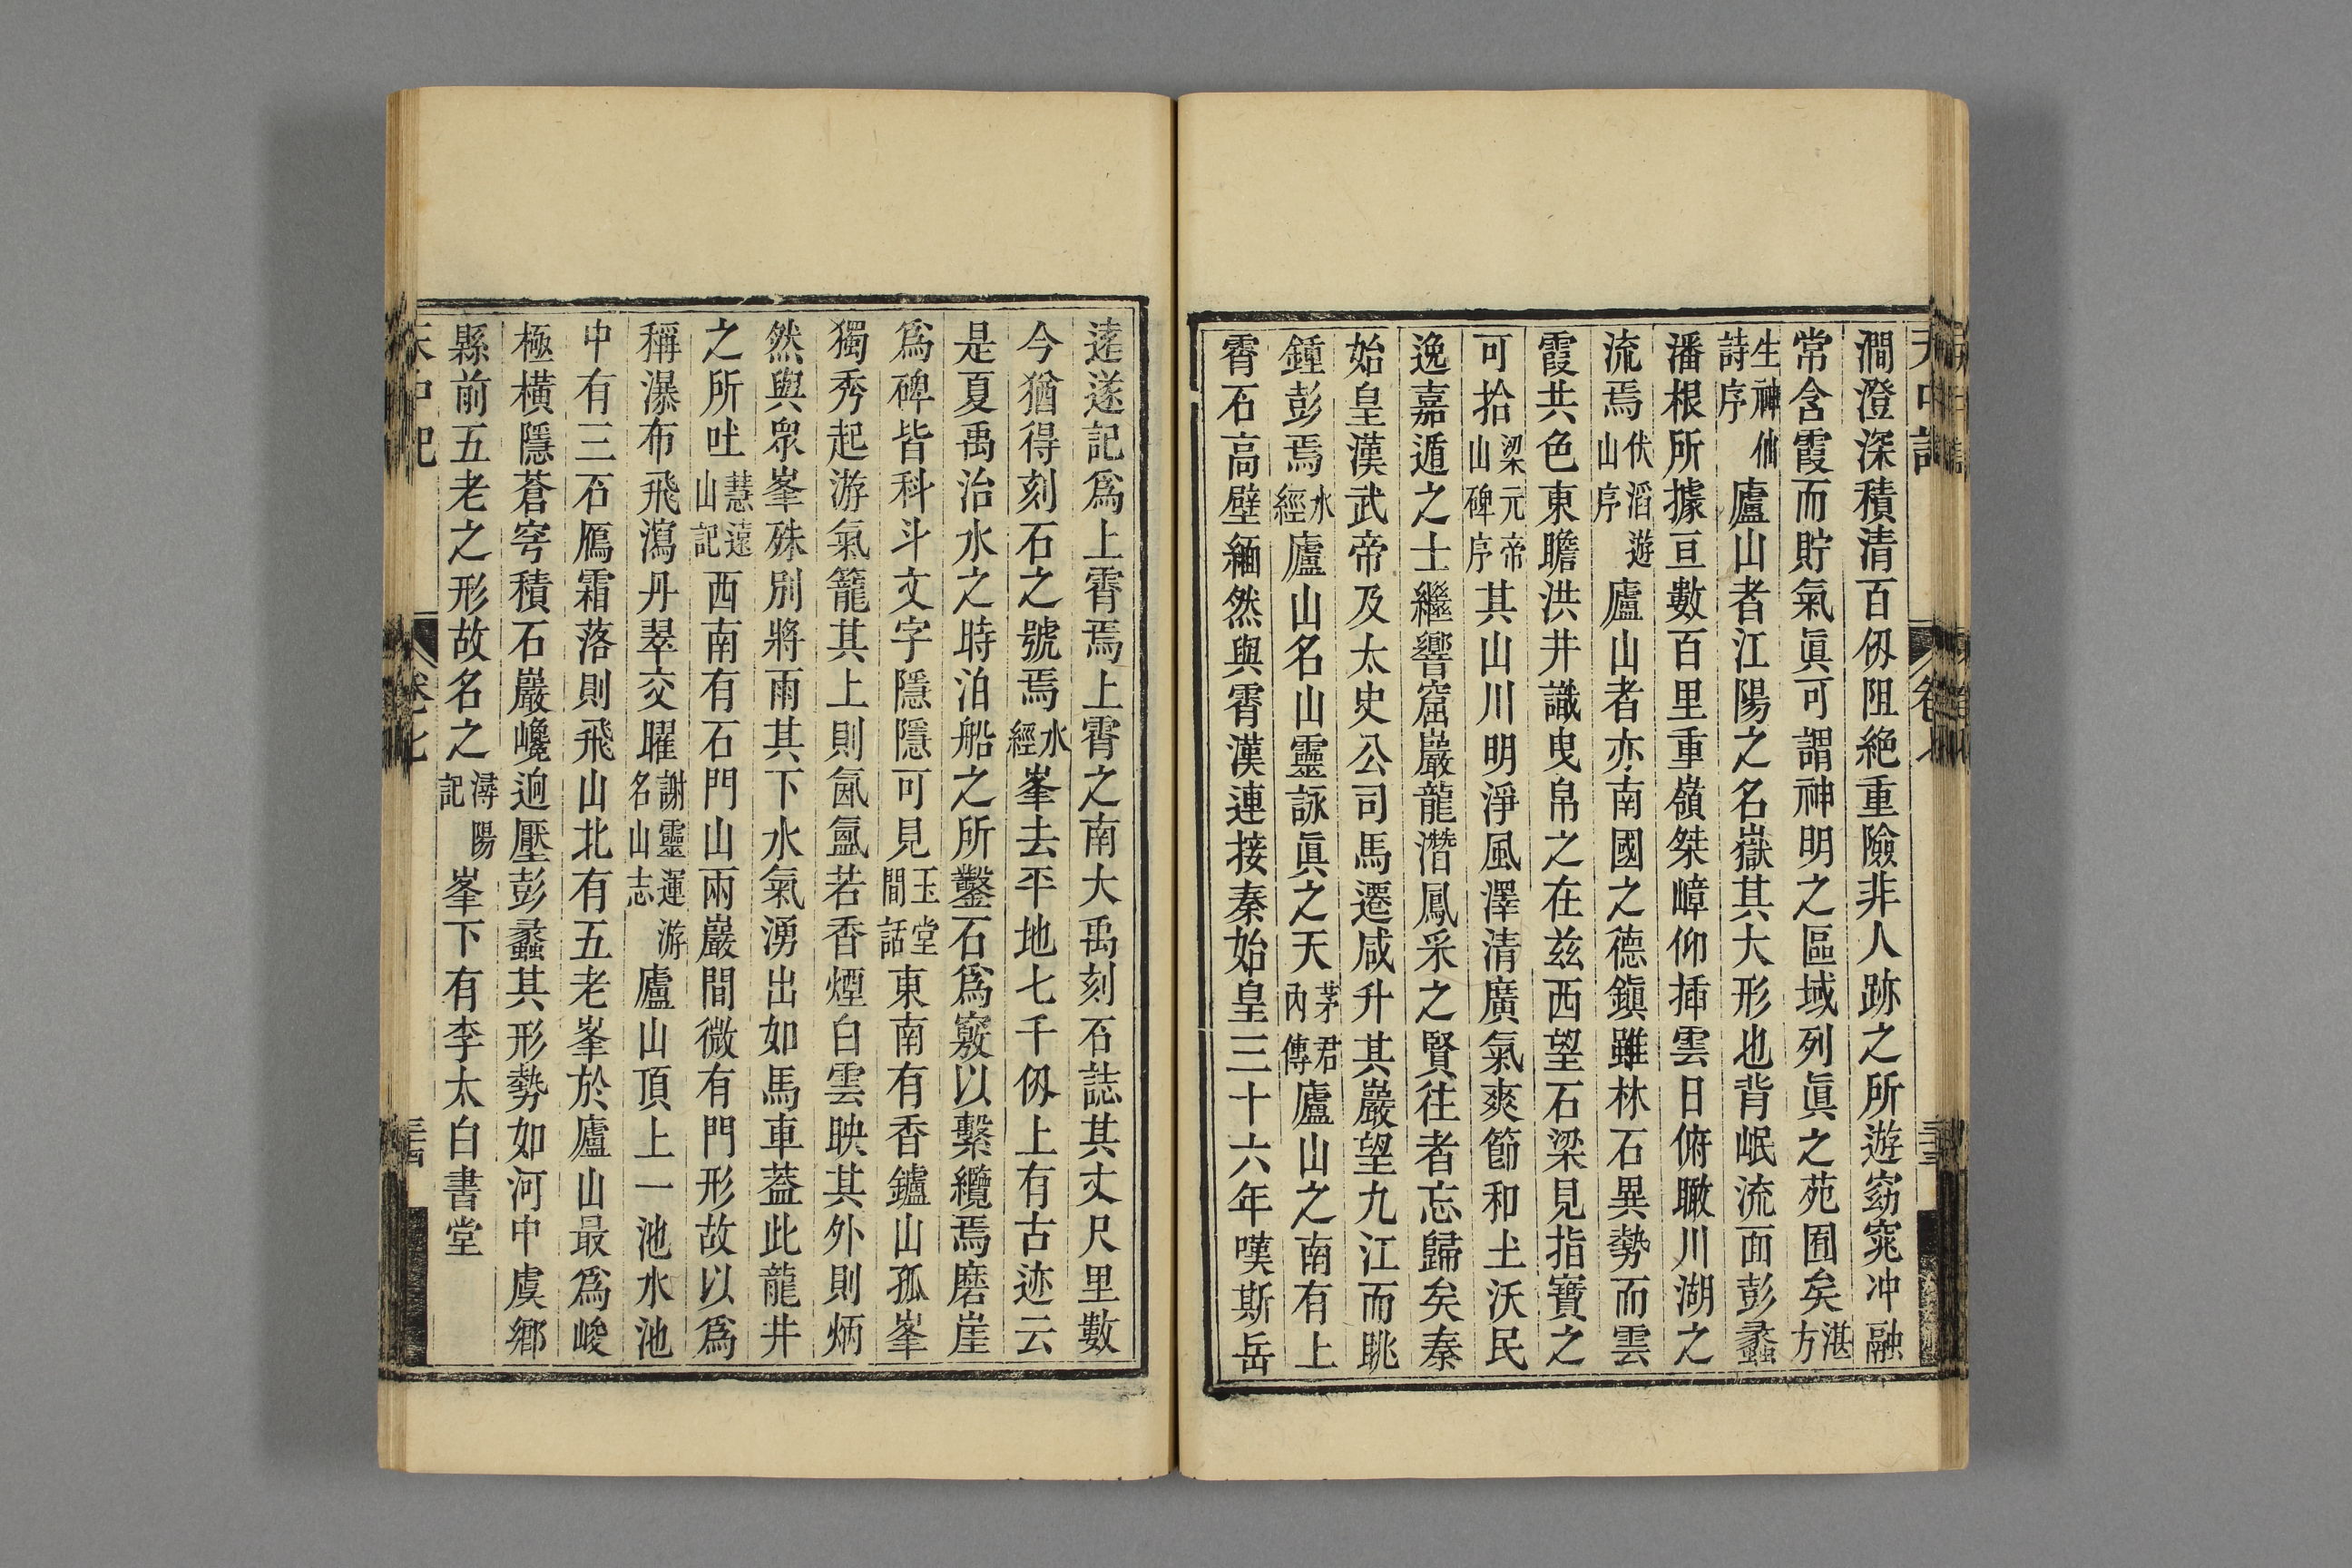 澗澄深積清百仭阻絶重險非人跡之所遊窈窕冲融
常含霞而貯氣眞可謂神明之區域列眞之苑囿矣湛方
生神仙詩序廬山者江陽之名嶽其大形也背岷流面彭蠡
潘根所據亘數百里重嶺桀嶂仰揷雲日俯瞰川湖之
流焉伏滔遊山序廬山者亦南國之德鎭雖林石異勢而雲
霞共色東瞻洪井識曳帛之在兹西望石梁見指寶之
可拾梁元帝山碑序其山川明淨風澤清廣氣爽節和土沃民
逸嘉遁之士繼響窟巖龍潛鳳采之賢往者忘歸矣秦
始皇漢武帝及太史公司馬遷咸升其巖望九江而眺
鍾彭焉水經廬山名山靈詠眞之天茅君內傳廬山之南有上
霄石高壁緬然與霄漢連接秦始皇三十六年嘆斯岳
逺遂記爲上霄焉上霄之南大禹刻石誌其丈尺里數
今猶得刻石之號焉水經峯去平地七千仭上有古迹云
是夏禹治水之時泊船之所鑿石爲竅以繫纜焉磨崖
爲碑皆科斗文字隱隱可見玉堂閒話東南有香鑪山孤峯
獨秀起游氣籠其上則氤氳若香煙白雲映其外則炳
然與衆峯殊別將雨其下水氣湧出如馬車蓋此龍井
之所吐慧遠山記西南有石門山兩巖間微有門形故以爲
稱瀑布飛瀉丹翠交曜謝靈運游名山志廬山頂上一池水池
中有三石鴈霜落則飛山北有五老峯於廬山最爲峻
極橫隱蒼穹積石巖巉迥壓彭蠡其形勢如河中虞鄉
縣前五老之形故名之潯陽記峯下有李太白書堂